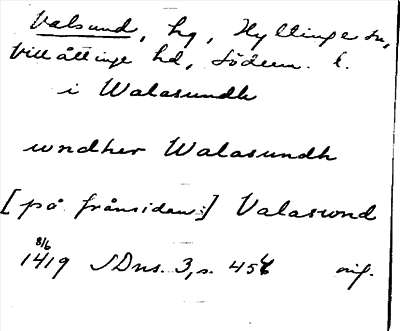 Valsund, hg, Hyltinge sn,
Villåttinge hd, Södem. l.
i Walasundh
wndher Walasundh
[på frånsidan:] Valaswnd
8/6 1419 SDns. 3, s. 456 orig.